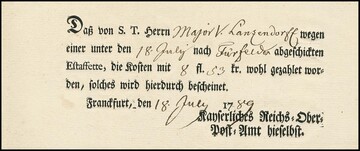 Daß von S. T. Herrn Major V. Langendorff wegen
einer unter den 18 July nach Fürfelden abgeschickten
Estaffette, die Kosten mit 8 fl. 53 kr. wohl gezahlt wor-
den, solches wird hierdurch bescheinet.
Franckfurt, den 18 July 1789
Kayserliches Reichs-Ober-
Post-Amt hieselbst.